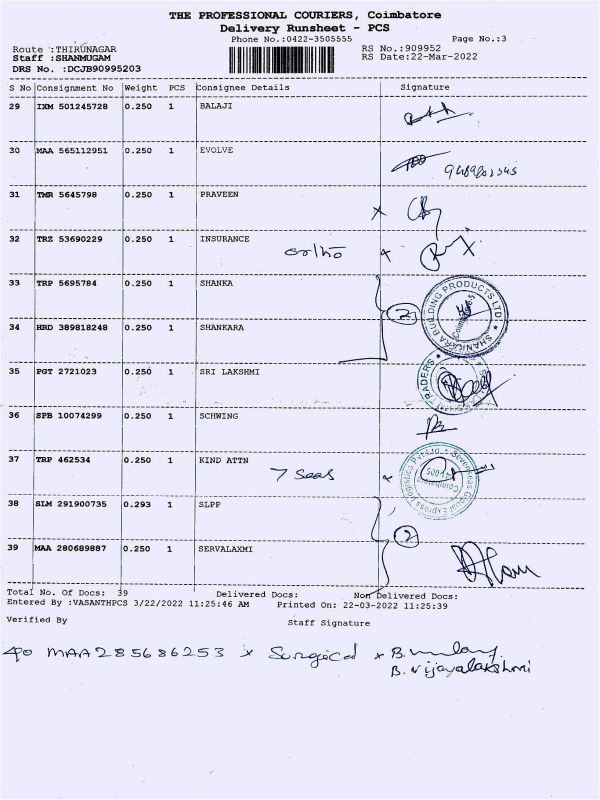 THE PROFESSIONAL COURIERS, Coimbatore
Delivery Runsheet - PCS
Phone No.:0422-3505555 Page No.:3
Route :THIRUNAGAR RS No.:909952
Staff :SHANMUGAM RS Date:22-Mar-2022
DRS No. :DCJB90995203
S No Consignment No Weight PCS Consignee Details Signature
29 IXM 501245728 0.250 1 BALAJI
30 MAA 565112951 0.250 1 EVOLVE
31 TMR 5645798 0.250 1 PRAVEEN x
32 TRZ 53690229 0.250 1 INSURANCE ortho x
33 TRP 5695784 0.250 1 SHANKA
2
SHANKARA BUILDING PRODUCTS LTD
34 HRD 389818248 0.250 1 SHANKARA
35 PGT 2721023 0.250 1 SRI LAKSHMI
TRADERS
36 SPB 10074299 0.250 1 SCHWING
37 TRP 462534 0.250 1 KIND ATTN 7 Seas x
Sevenseas Global Express Logistics Pvt Ltd.
38 SLM 291900735 0.293 1 SLPP
2
39 MAA 280689887 0.250 1 SERVALAXMI
Total No. Of Docs: 39 Delivered Docs: Non Delivered Docs:
Entered By :VASANTHPCS 3/22/2022 11:25:46 AM Printed On: 22-03-2022 11:25:39
Verified By Staff Signature
40 MAA285686253 x Surgical x
B. Vijayalakshmi